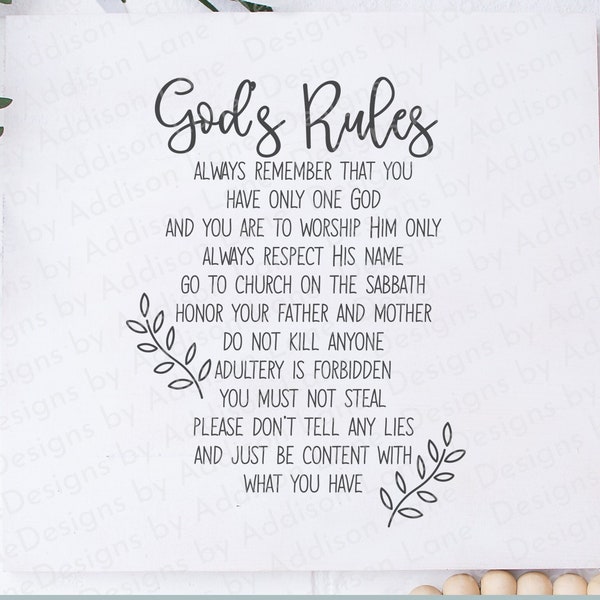 God's Rules
ALWAYS REMEMBER THAT YOU
HAVE ONLY ONE GOD
AND YOU ARE TO WORSHIP HIM ONLY
ALWAYS RESPECT HIS NAME
GO TO CHURCH ON THE SABBATH
HONOR YOUR FATHER AND MOTHER
DO NOT KILL ANYONE
ADULTERY IS FORBIDDEN
YOU MUST NOT STEAL
PLEASE DON'T TELL ANY LIES
AND JUST BE CONTENT WITH
WHAT YOU HAVE
Designs by Addison Lane